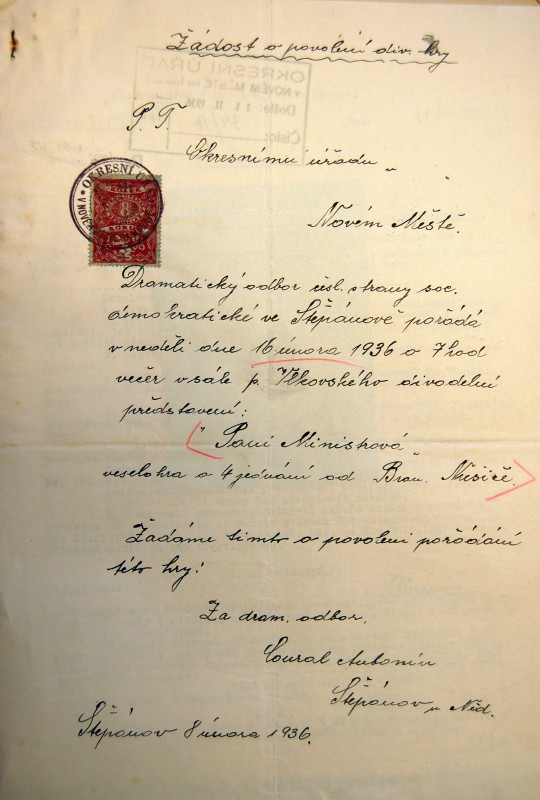 Žádost o povolení div. hry
P. T.
Okresnímu úřadu
v
Novém Městě.
OKRESNÍ ÚŘAD
v NOVÉM MĚSTĚ na
Došlo: 11. II. 1936
Číslo:
OKRESNÍ
KOLEK
8
Dramatický odbor čsl. strany soc.
demokratické ve Štěpánově pořádá
v neděli dne 16 února 1936 o 7 hod
večer v sále p. Vlkovského divadelní
představení:
"Paní Ministrová"
veselohra o 4 jednání od Bran. Nušiče.
Žádáme tímto o povolení pořádání
této hry!
Za dram. odbor.
Coural Antonín
Štěpánov u Něd.
Štěpánov 8 února 1936.